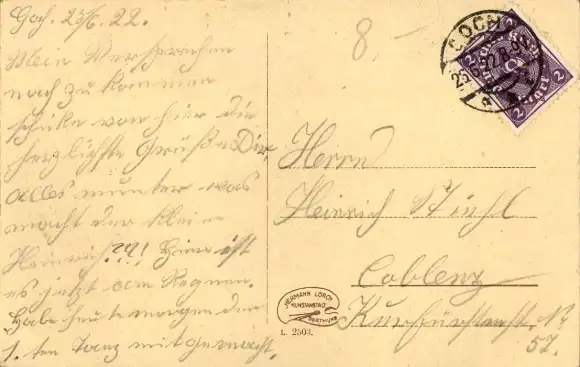 Goch. 23/6. 22.
Mein Versprechen
nach zu kommen
schicke von hier die
herzlichste Grüße Dir,
alles munter was
macht der kleine
Heinrich??!! hier ist
es jetzt am Regnen.
Habe heute morgen den
1. ten Tanz mitgemacht.
8.–
COCH
2 2
Herrn
Heinrich
Coblenz
Kurfürstenst. Nr
52.
HERMANN LORCH
KUNSTANSTALT
DORTMUND
L. 2503.